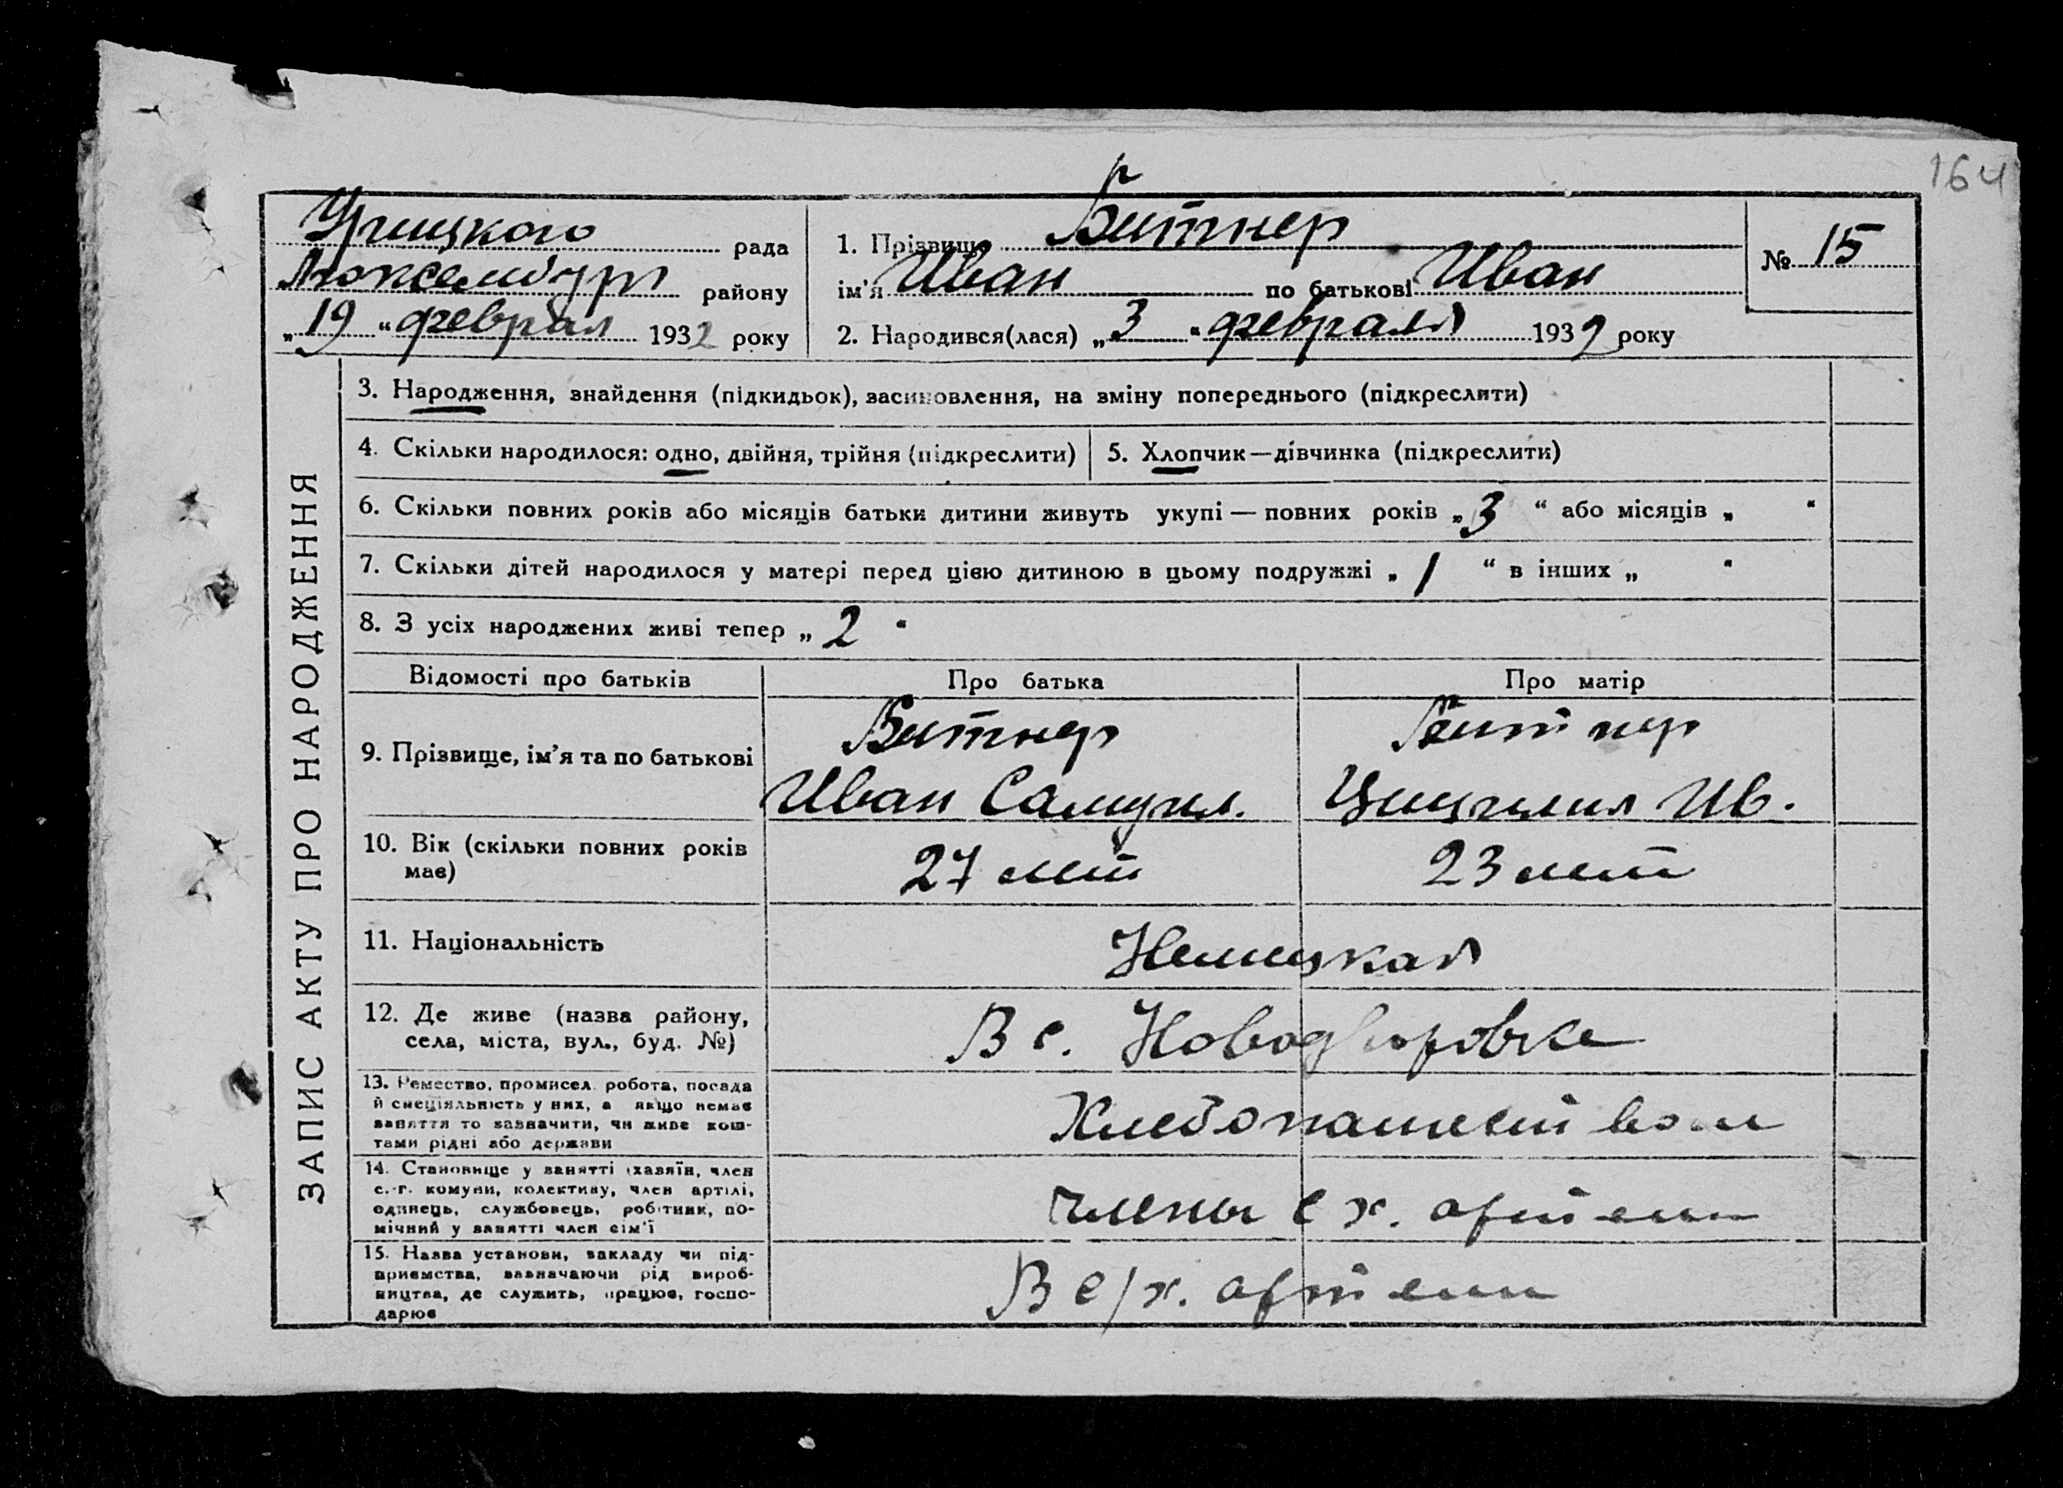 164
Урицкого рада
Люксембург району
„19“ феврал 1932 року
1. Прізвище Битнер
ім'я Иван по батькові Иван
2. Народився(лася) „3“ февраля 1932 року
№ 15
ЗАПИС АКТУ ПРО НАРОДЖЕННЯ
3. Народження, знайдення (підкидьок), засиновлення, на зміну попереднього (підкреслити)
4. Скільки народилося: одно, двійня, трійня (підкреслити)
5. Хлопчик—дівчинка (підкреслити)
6. Скільки повних років або місяців батьки дитини живуть укупі — повних років „3“ або місяців „ “
7. Скільки дітей народилося у матері перед цією дитиною в цьому подружжі „1“ в інших „ “
8. З усіх народжених живі тепер „2“
Відомості про батьків Про батька Про матір
9. Прізвище, ім'я та по батькові
Битнер
Иван Самуил.
Битнер
Цицилия Ив.
10. Вік (скільки повних років
має)
27 лет
23 лет
11. Національність
Немецкая
12. Де живе (назва району,
села, міста, вул., буд. №)
В с. Новодворовке
13. Ремество, промисел, робота, посада
й спеціяльність у них, а якщо немає
заняття то зазначити, чи живе кош-
тами рідні або держави
Хлебопашеством
14. Становище у занятті (хазяїн, член
с.-г. комуни, колективу, член артілі,
одинець, службовець, робітник, по-
мічний у занятті член сім'ї
члены с х. артели
15. Назва установи, закладу чи під-
приємства, зазначаючи рід вироб-
ництва, де служить, працює, госпо-
дарює
В с/х. артели